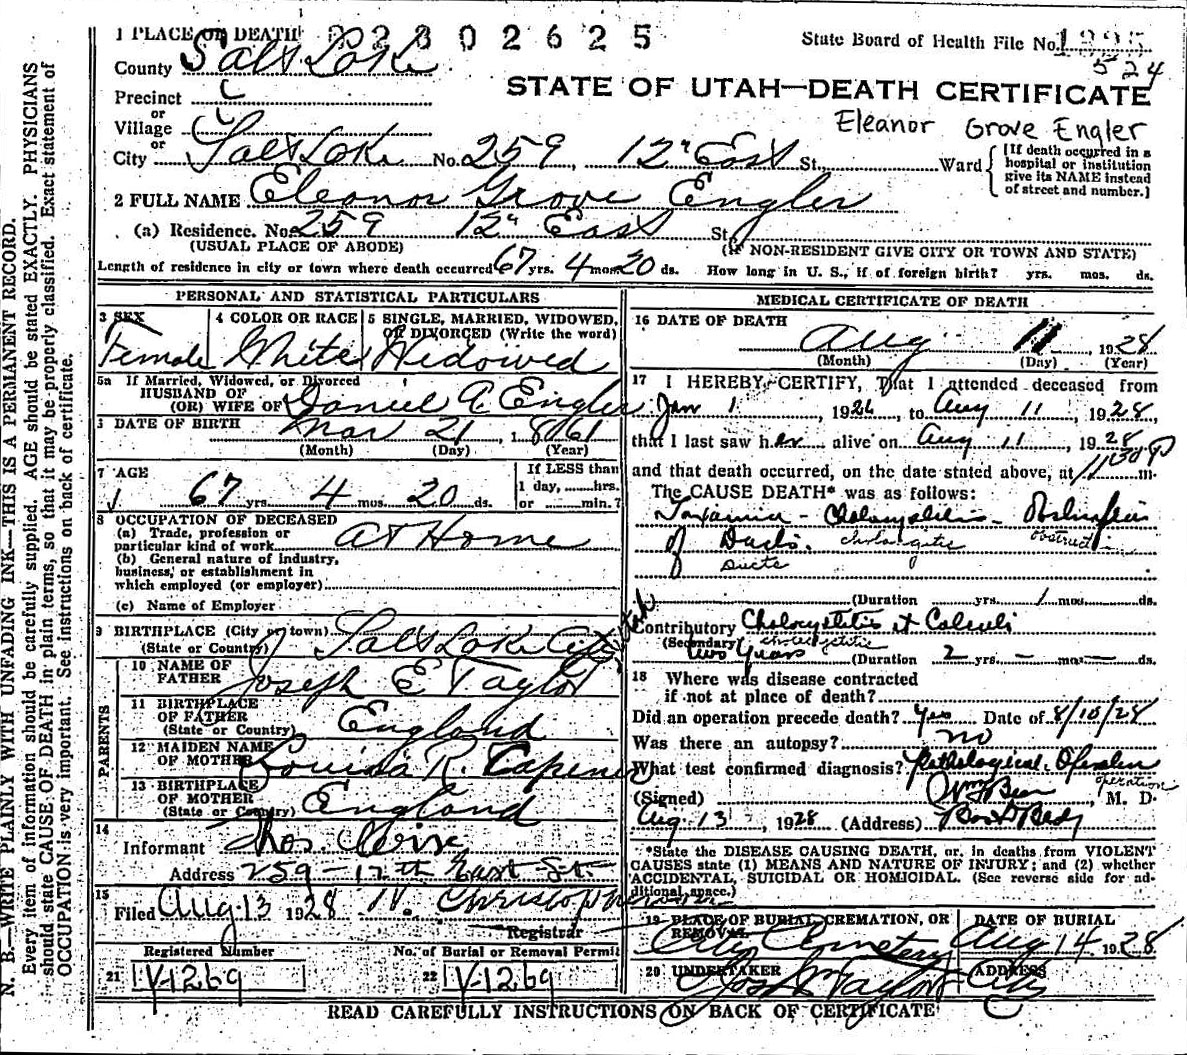 N. B.—WRITE PLAINLY WITH UNFADING INK—THIS IS A PERMANENT RECORD.
Every item of information should be carefully supplied. AGE should be stated EXACTLY. PHYSICIANS
should state CAUSE OF DEATH in plain terms, so that it may be properly classified. Exact statement of
OCCUPATION is very important. See instructions on back of certificate.
1 PLACE OF DEATH 2302625
State Board of Health File No.
524
County Salt Lake
STATE OF UTAH—DEATH CERTIFICATE
Precinct
or
Village
or
Eleanor Grove Engler
City Salt Lake No. 259, 12" East St. Ward
[If death occurred in a
hospital or institution
give its NAME instead
of street and number.]
2 FULL NAME Eleanor Grove Engler
(a) Residence. No. 259 12" East St.
(USUAL PLACE OF ABODE) (If NON-RESIDENT GIVE CITY OR TOWN AND STATE)
Length of residence in city or town where death occurred 67 yrs. 4 mos. 20 ds. How long in U. S., if of foreign birth? yrs. mos. ds.
PERSONAL AND STATISTICAL PARTICULARS
3 SEX
Female
4 COLOR OR RACE
White
5 SINGLE, MARRIED, WIDOWED,
OR DIVORCED (Write the word)
Widowed
5a If Married, Widowed, or Divorced
HUSBAND OF
(OR) WIFE OF Daniel A Engler
DATE OF BIRTH Mar 21, 1861
(Month) (Day) (Year)
7 AGE
67 yrs. 4 mos. 20 ds.
If LESS than
1 day, hrs.
or min.?
8 OCCUPATION OF DECEASED
(a) Trade, profession or
particular kind of work At Home
(b) General nature of industry,
business, or establishment in
which employed (or employer)
(c) Name of Employer
9 BIRTHPLACE (City or town) Salt Lake City Utah
(State or Country)
PARENTS
10 NAME OF
FATHER Joseph E Taylor
11 BIRTHPLACE
OF FATHER England
(State or Country)
12 MAIDEN NAME
OF MOTHER Louisa R. Capener
13 BIRTHPLACE
OF MOTHER England
(State or Country)
14
Informant
Address 259-12th East St.
15
Filed Aug 13 1928
Registrar
Registered Number
21 V-1269
No. of Burial or Removal Permit
22 V-1269
MEDICAL CERTIFICATE OF DEATH
16 DATE OF DEATH
Aug 11, 1928
(Month) (Day) (Year)
17 I HEREBY CERTIFY, That I attended deceased from
Jan 1, 1926, to Aug 11, 1928,
that I last saw her alive on Aug 11, 1928
and that death occurred, on the date stated above, at 11:30 P m.
The CAUSE DEATH* was as follows:
of Ducts.
obstruction
ducts
(Duration yrs. 1 mos. ds.
Contributory
(Secondary)
two years (Duration 2 yrs. — mos. — ds.
18 Where was disease contracted
if not at place of death?
Did an operation precede death? Yes Date of 8/10/28
Was there an autopsy? no
What test confirmed diagnosis? Pathological. Operation
operation
(Signed) , M. D.
Aug 13, 1928 (Address)
*State the DISEASE CAUSING DEATH, or, in deaths from VIOLENT
CAUSES state (1) MEANS AND NATURE OF INJURY; and (2) whether
ACCIDENTAL, SUICIDAL OR HOMICIDAL. (See reverse side for ad-
ditional space.)
19 PLACE OF BURIAL, CREMATION, OR
REMOVAL
City Cemetery
DATE OF BURIAL
Aug 14 1928
20 UNDERTAKER
Taylor
ADDRESS
City
READ CAREFULLY INSTRUCTIONS ON BACK OF CERTIFICATE